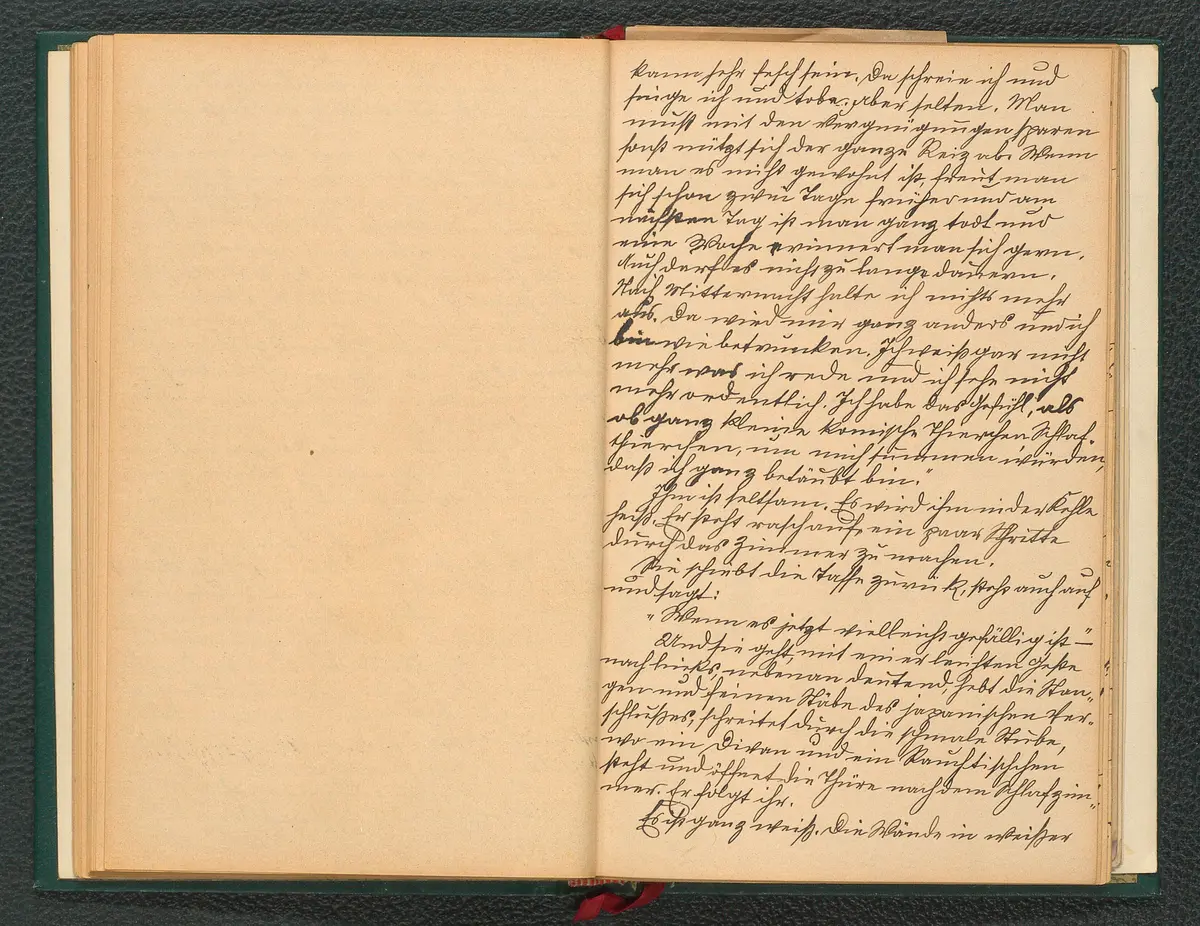 kann sehr fesch sein. Da schreie ich und
singe ich und tobe. Aber selten. Man
muß mit den Vergnügungen sparen
sonst nützt sich der ganze Reiz ab. Wenn
man es nicht gewohnt ist, freut man
sich schon zwei Tage früher und am
nächsten Tag ist man ganz todt und
eine Woche erinnert man sich gern.
Auch darf es nicht zu lange dauern.
Nach Mitternacht halte ich nichts mehr
aus. Da wird mir ganz anders und ich
bin wie betrunken. Ich weiß gar nicht
mehr was ich rede und ich sehe nicht
mehr ordentlich. Ich habe das Gefühl, als
ob ganz kleine komische Thierchen, Schlaf-
thierchen, um mich summen würden,
daß ich ganz betäubt bin."
Ihm ist seltsam. Es wird ihm in der Kehle
heiß. Er steht rasch auf, ein paar Schritte
durch das Zimmer zu machen.
Sie schiebt die Tasse zurück, steht auch auf
und sagt:
„Wenn es jetzt vielleicht gefällig ist" –
Und sie geht, mit einer leichten Geste
nach links, nebenan deutend, hebt die Stan-
gen und feinen Stäbe des japanischen Ver-
schlußes, schreitet durch die schmale Stube,
wo ein Divan und ein Rauchtischchen
steht und öffnet die Thüre nach dem Schlafzim-
mer. Er folgt ihr.
Es ist ganz weiß. Die Wände in weißer